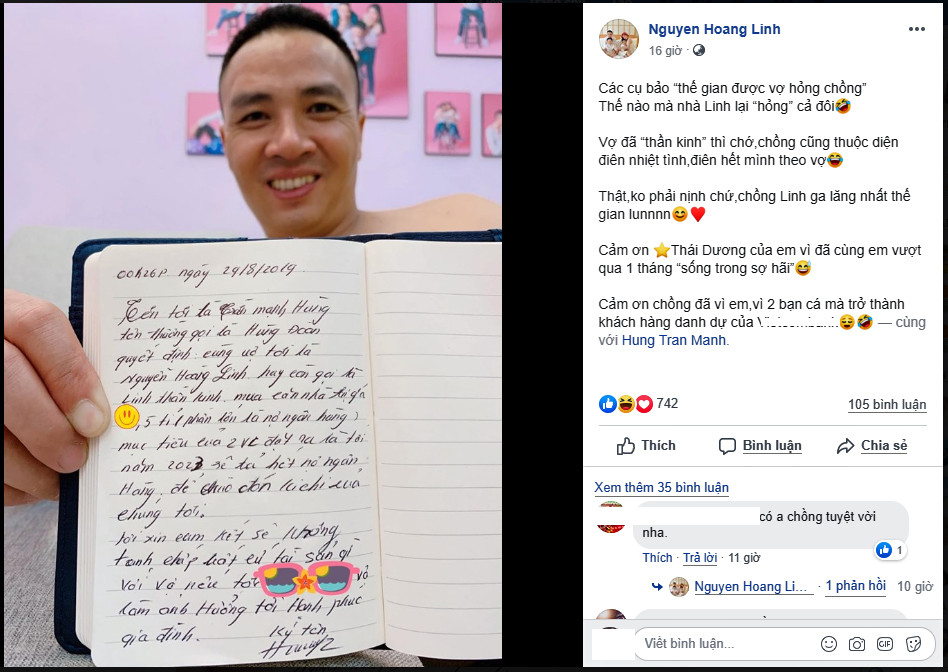 00h26p ngày 29/8/2019
Tên tôi là Trần mạnh Hùng
tên thường gọi là Hùng Đoàn
quyết định cùng vợ tôi là
Nguyễn Hoàng Linh hay còn gọi là
Linh thần kinh. mua căn nhà trị giá
,5 tỉ phần lớn là nợ ngân hàng
mục tiêu của 2 VC đặt ra là tới
năm 2023 sẽ trả hết nợ ngân
Hàng. để chào đón
chúng tôi.
tôi xin cam kết sẽ không
tranh chấp bất cứ tài sản gì
với vợ nếu tôi
làm ảnh Hưởng tới Hạnh phúc
gia đình.
Ký tên
Nguyen Hoang Linh
16 giờ ·
Các cụ bảo “thế gian được vợ hỏng chồng”
Thế nào mà nhà Linh lại “hỏng” cả đôi🤣
Vợ đã “thần kinh” thì chớ,chồng cũng thuộc diện
điên nhiệt tình,điên hết mình theo vợ😂
Thật,ko phải nịnh chứ,chồng Linh ga lăng nhất thế
gian lunnnn😊❤️
Cảm ơn ⭐Thái Dương của em vì đã cùng em vượt
qua 1 tháng “sống trong sợ hãi”😅
Cảm ơn chồng đã vì em,vì 2 bạn cá mà trở thành
khách hàng danh dự của 😌🤣 — cùng
với Hung Tran Manh.
742 105 bình luận
Thích Bình luận Chia sẻ
Xem thêm 35 bình luận
có a chồng tuyệt vời
nha.
1
Thích · Trả lời · 11 giờ
Nguyen Hoang Li... · 1 phản hồi 10 giờ
Viết bình luận... GIF